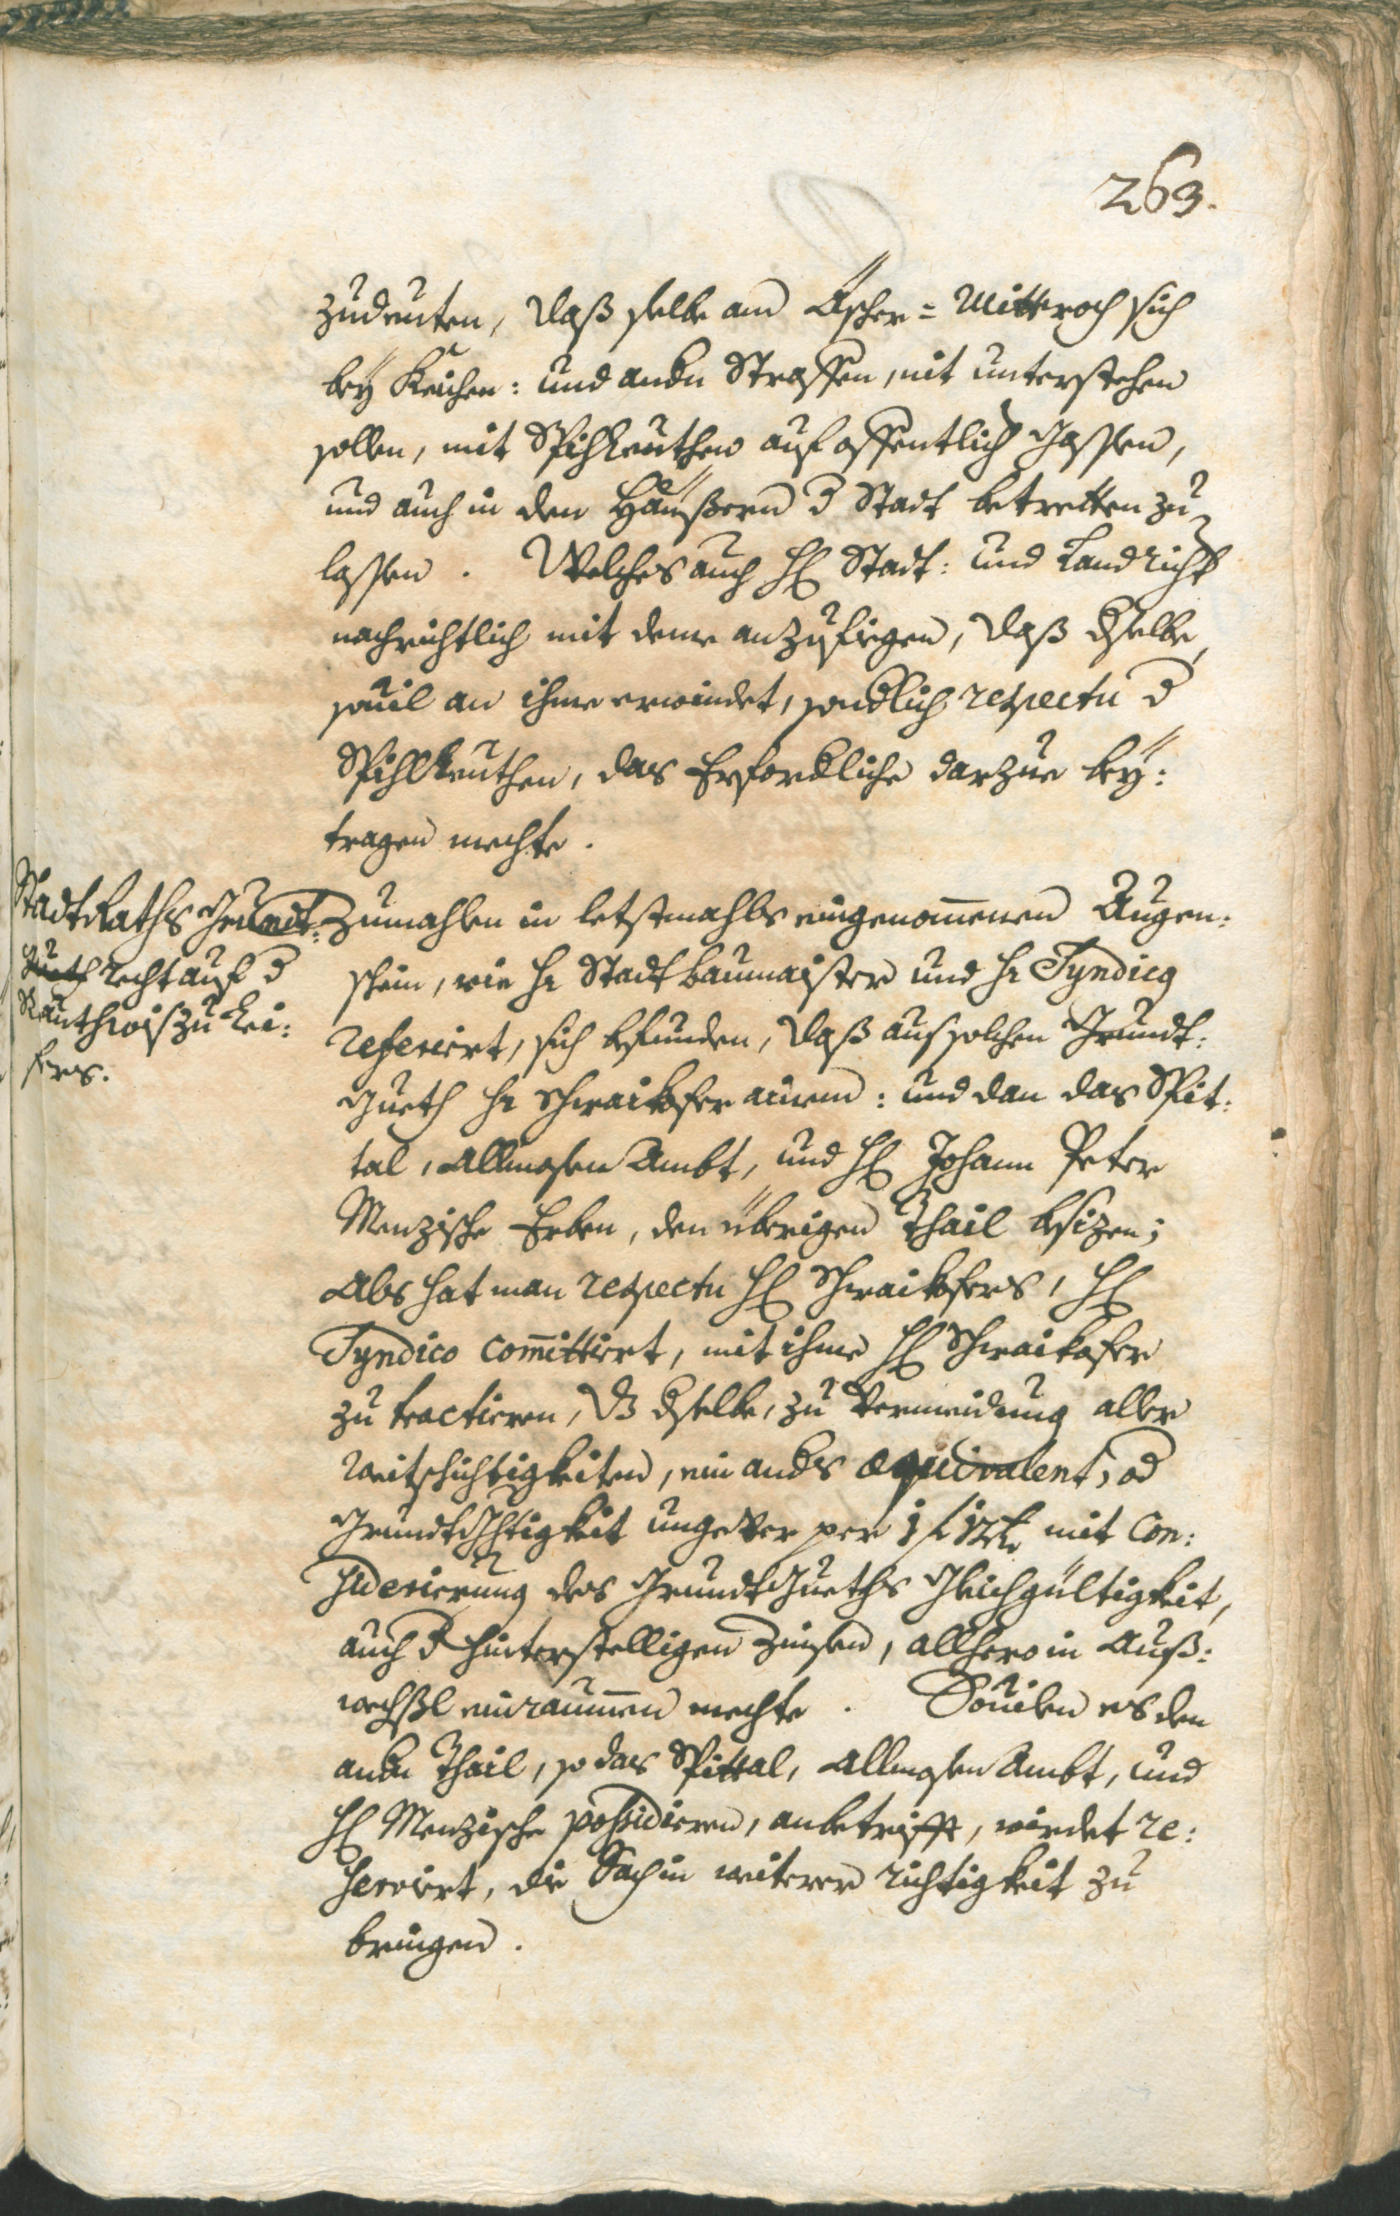 263.
zudeuten, daß selbe am Ascher=Mittwoch sich
bey Keichen: und andn Straffen, nit unterstehen
sollen, mit Spihlleuthen auf offentlich Gassen,
und auch in den Häußern d Stadt betretten zu
lassen. Welches auch H Stadt: und Landricht
nachrichtlich mit deme anzufiegen, daß dselbe,
souil an ihme erwindet, sondlich respectu d
Spihlleuthen, das Erfordliche darzue bey:
tragen mechte.
StadtRaths Grundt:
Gueth recht auf d
Rauthwis zu Lei:
fers.
Zumahlen in letstmahls eingenommenen Augen:
schein, wie Hr Stadtbaumaister und Hr Syndicq
referiert, sich befunden, daß auf solchen Grundt:
Gueth Hr Schwaikofer ainem: und dan das Spit:
tal, Allmosen Ambt, und H Johann Peter
Menzische Erben, den überigen Thail besizen;
Als hat man respectu H Schwaikofers, H
Syndico committiert, mit ihme H Schwaikofer
zu tractieren, dz dselbe, zu Vermeidung aller
Weitschichtigkeiten, ein ands æquivalent, od
Grundtgerechtigkeit ungever per 1 f 12 kr mit Con:
siderierung des GrundtGueths Gleichgültigkeit,
auch d hinterstelligen Zinsen, allhero in Auß:
wechßl einraumen mechte. Souilen es den
andn Thail, so das Spittal, Allmosen Ambt, und
H Menzische possidieren, anbetrifft, wirdet re:
serviert, die Sach in weiterer Richtigkeit zu
bringen.